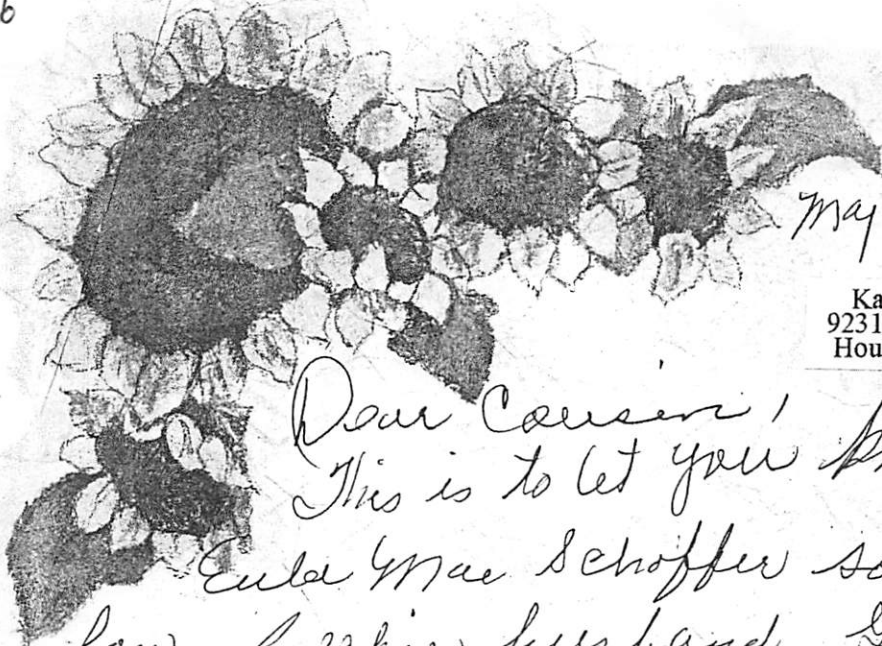 6
May
Ka
9231
Hou
Dear Cousin,
This is to let you
Eula Mae Schoffer
husband